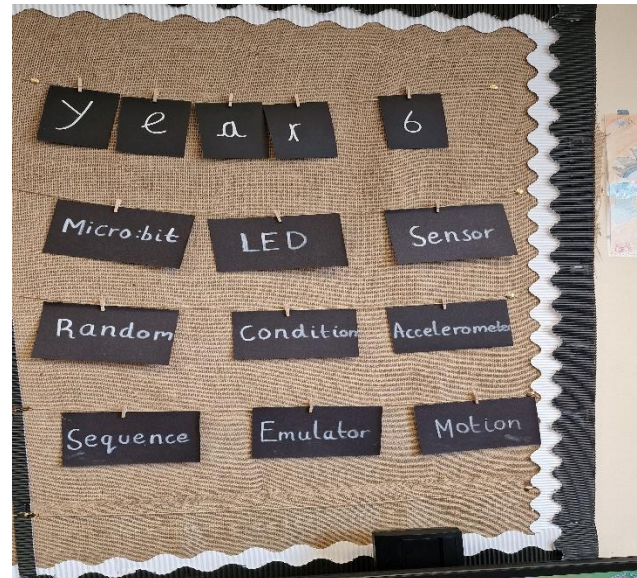 Year 6
Micro:bit LED Sensor
Random Condition Accelerometer
Sequence Emulator Motion